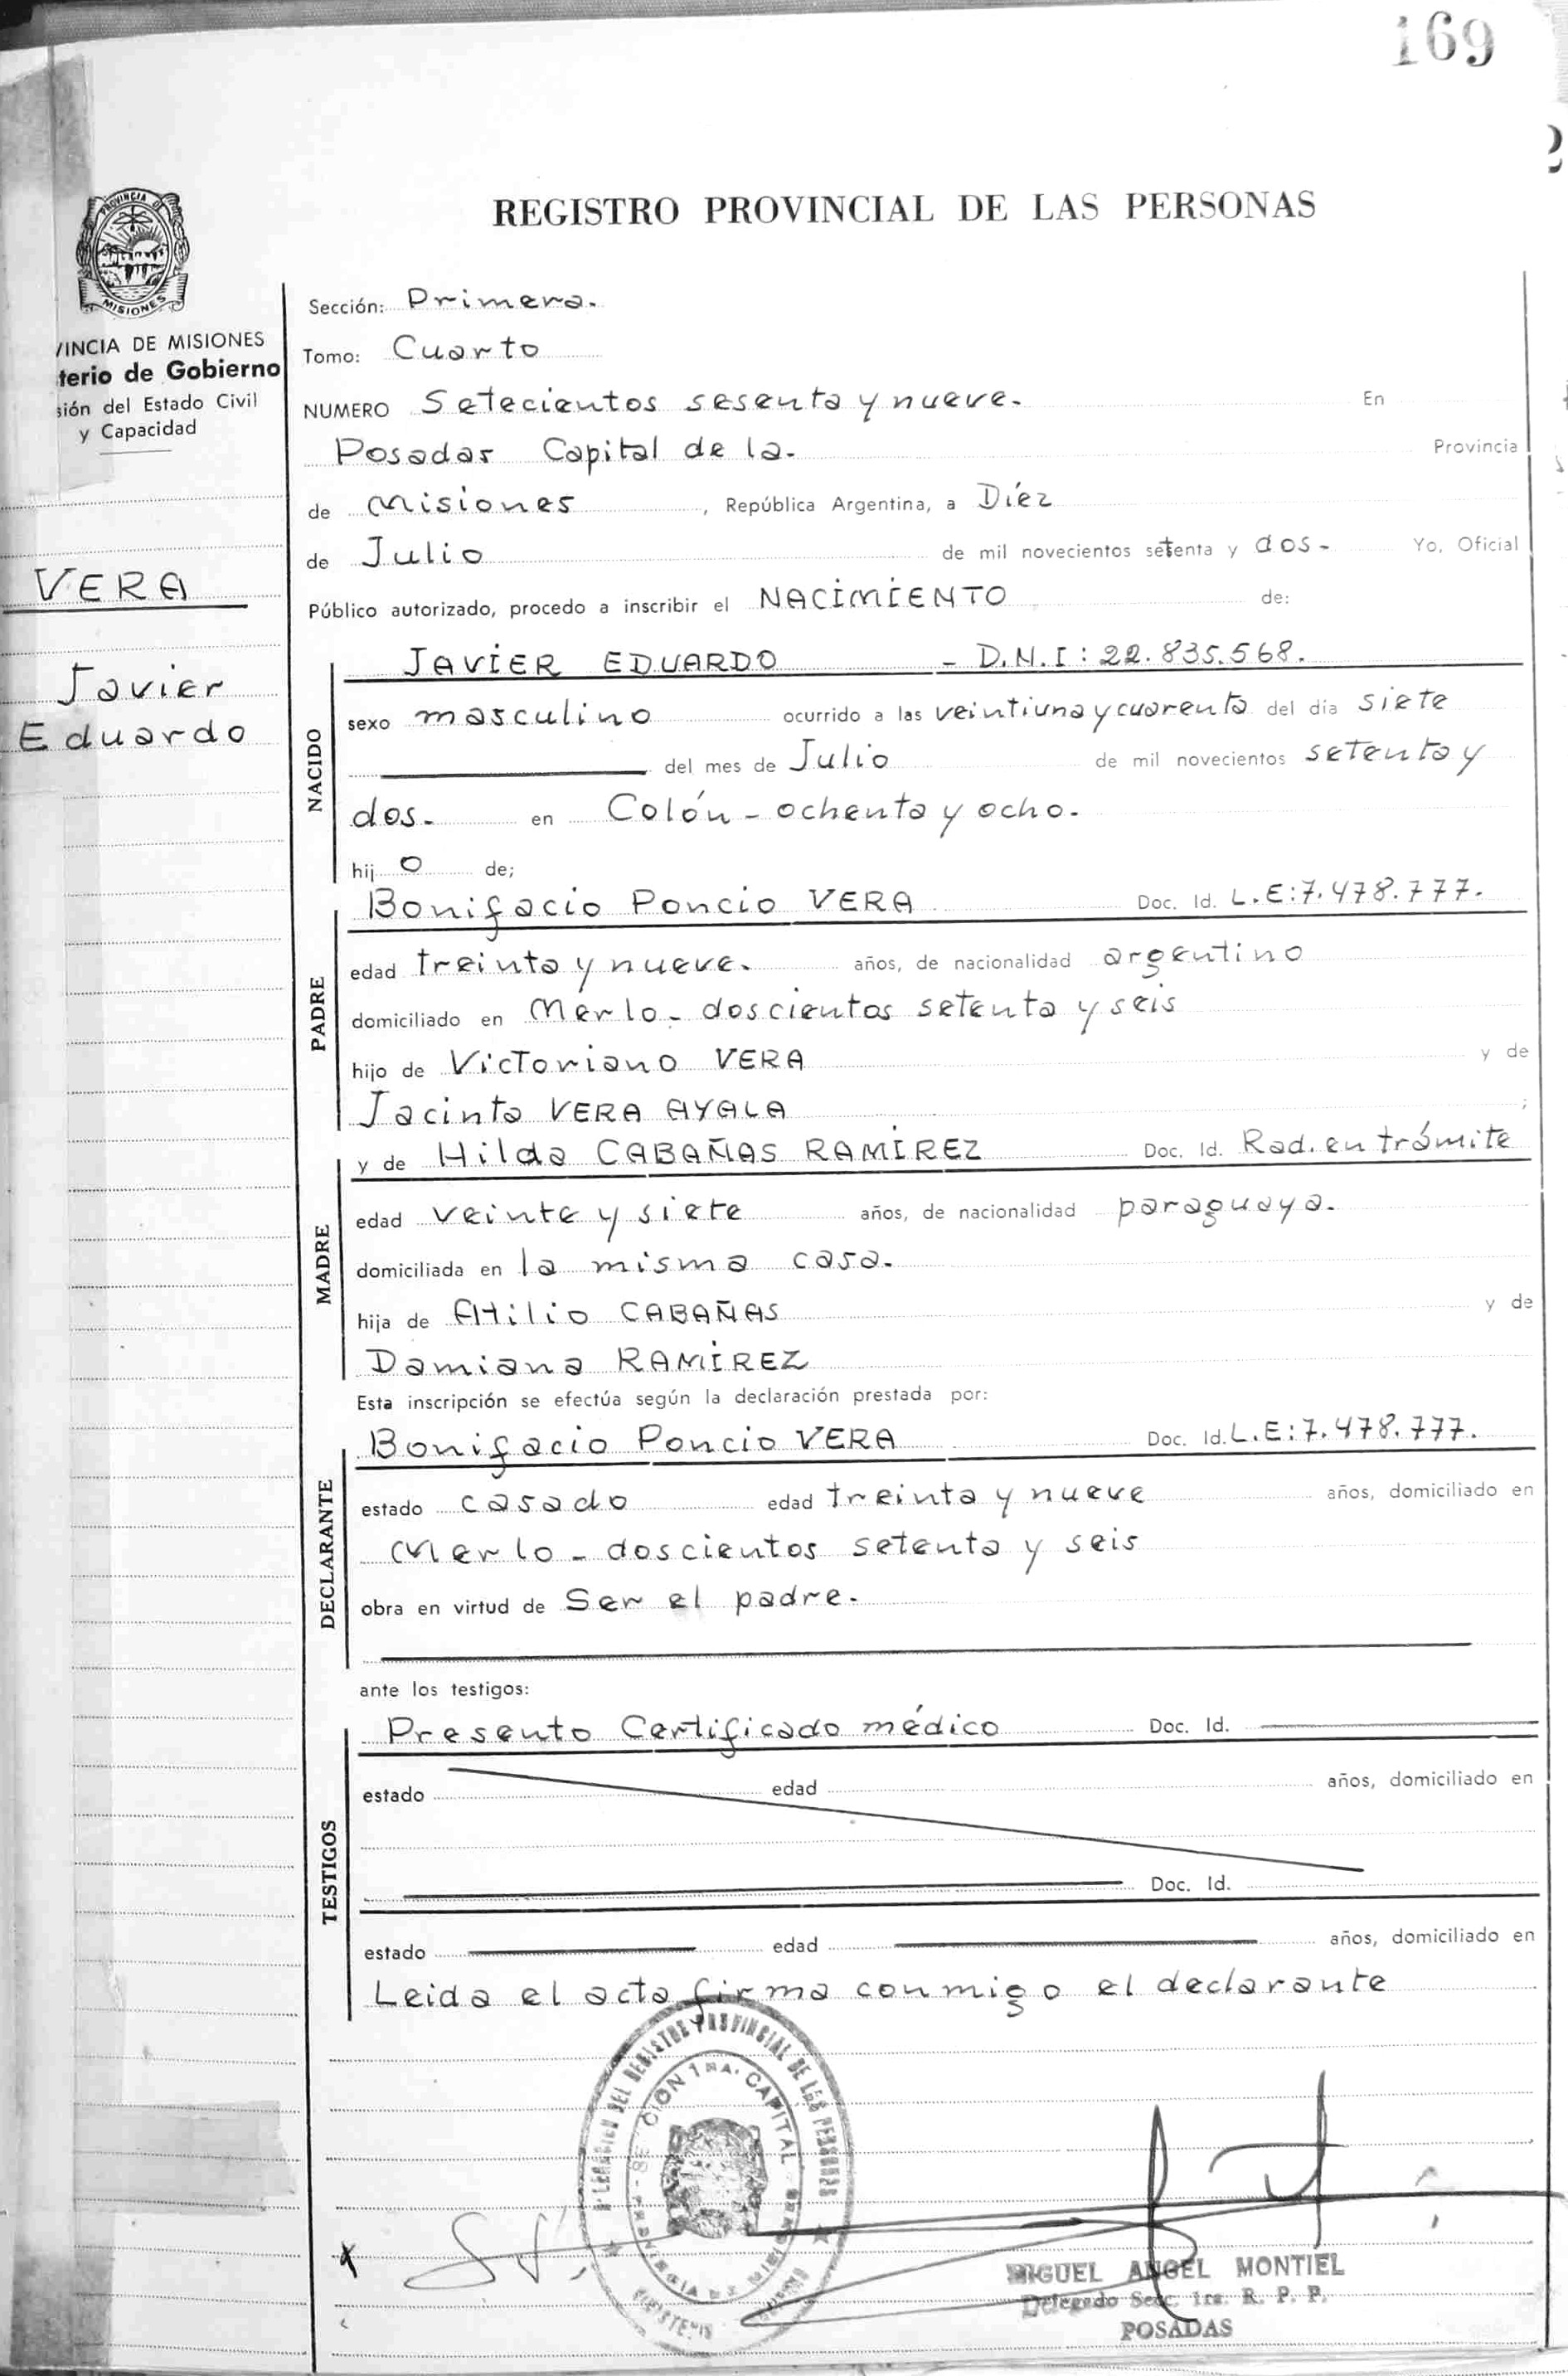 169
REGISTRO PROVINCIAL DE LAS PERSONAS
PROVINCIA DE
MISIONES
VINCIA DE MISIONES
terio de Gobierno
sión del Estado Civil
y Capacidad
VERA
Javier
Eduardo
Sección: Primera.
Tomo: Cuarto
NUMERO Setecientos sesenta y nueve. En
Posadas Capital de la. Provincia
de Misiones, República Argentina, a Diez
de Julio de mil novecientos setenta y dos- Yo, Oficial
Público autorizado, procedo a inscribir el NACIMIENTO de:
NACIDO
JAVIER EDUARDO - D.N.I: 22.835.568.
sexo masculino ocurrido a las veintiuna y cuarenta del día siete
del mes de Julio de mil novecientos setenta y
dos. en Colón - ochenta y ocho.
hij o de;
PADRE
Bonifacio Poncio VERA Doc. Id. L.E:7.478.777.
edad treinta y nueve. años, de nacionalidad argentino
domiciliado en Merlo - doscientos setenta y seis
hijo de Victoriano VERA y de
Jacinta VERA AYALA ;
MADRE
y de Hilda CABAÑAS RAMÍREZ Doc. Id. Rad. en trámite
edad veinte y siete años, de nacionalidad paraguaya.
domiciliada en la misma casa.
hija de Atilio CABAÑAS y de
Damiana RAMÍREZ
Esta inscripción se efectúa según la declaración prestada por:
DECLARANTE
Bonifacio Poncio VERA Doc. Id. L.E:7.478.777.
estado casado edad treinta y nueve años, domiciliado en
Merlo - doscientos setenta y seis
obra en virtud de Ser el padre.
ante los testigos:
TESTIGOS
Presento Certificado médico Doc. Id.
estado edad años, domiciliado en
Doc. Id.
estado edad años, domiciliado en
Leida el acta firma conmigo el declarante
DEL REGISTRO PROVINCIAL DE LAS PERSONAS
SECCION 1RA. CAPITAL
PROVINCIA DE MISIONES
MIGUEL ANGEL MONTIEL
Delegado Secc. 1ra. R. P. P.
POSADAS